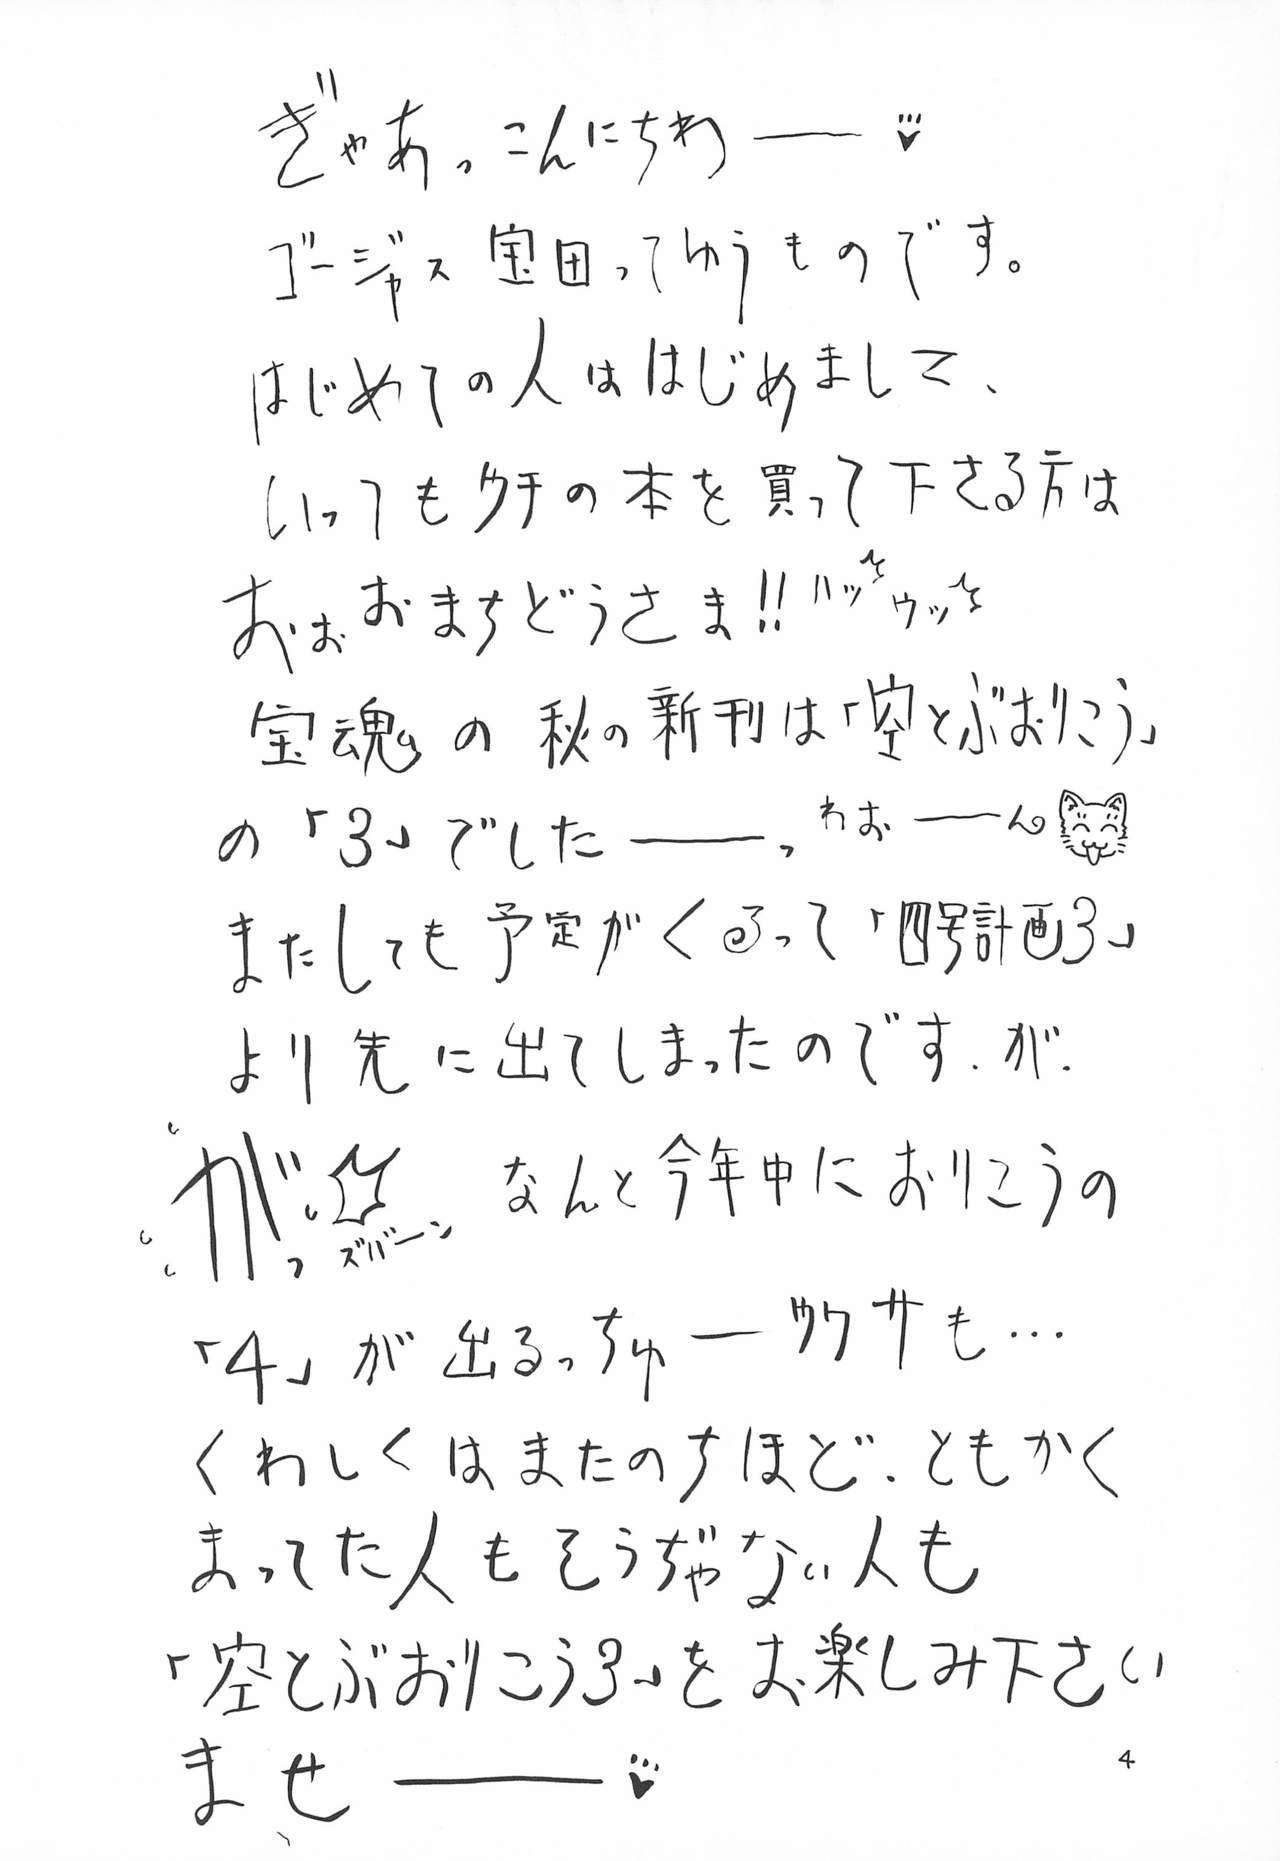 ぎゃあっこんにちわ――♥
ゴージャス宝田ってゆうものです。
はじめての人ははじめまして、
いっつもウチの本を買って下さる方は
おぉおまちどうさま!!ハッウッ
宝魂の秋の新刊は「空とぶおりこう」
の「3」でした――、わお――ん
またしても予定がくるって「四号計画3」
より先に出てしまったのです.が.
がっズバーン なんと今年中におりこうの
「4」が出るっちゅーウワサも…
くわしくはまたのちほど.ともかく
まってた人もそうぢゃない人も
「空とぶおりこう3」をお楽しみ下さい
ませ――♥
4